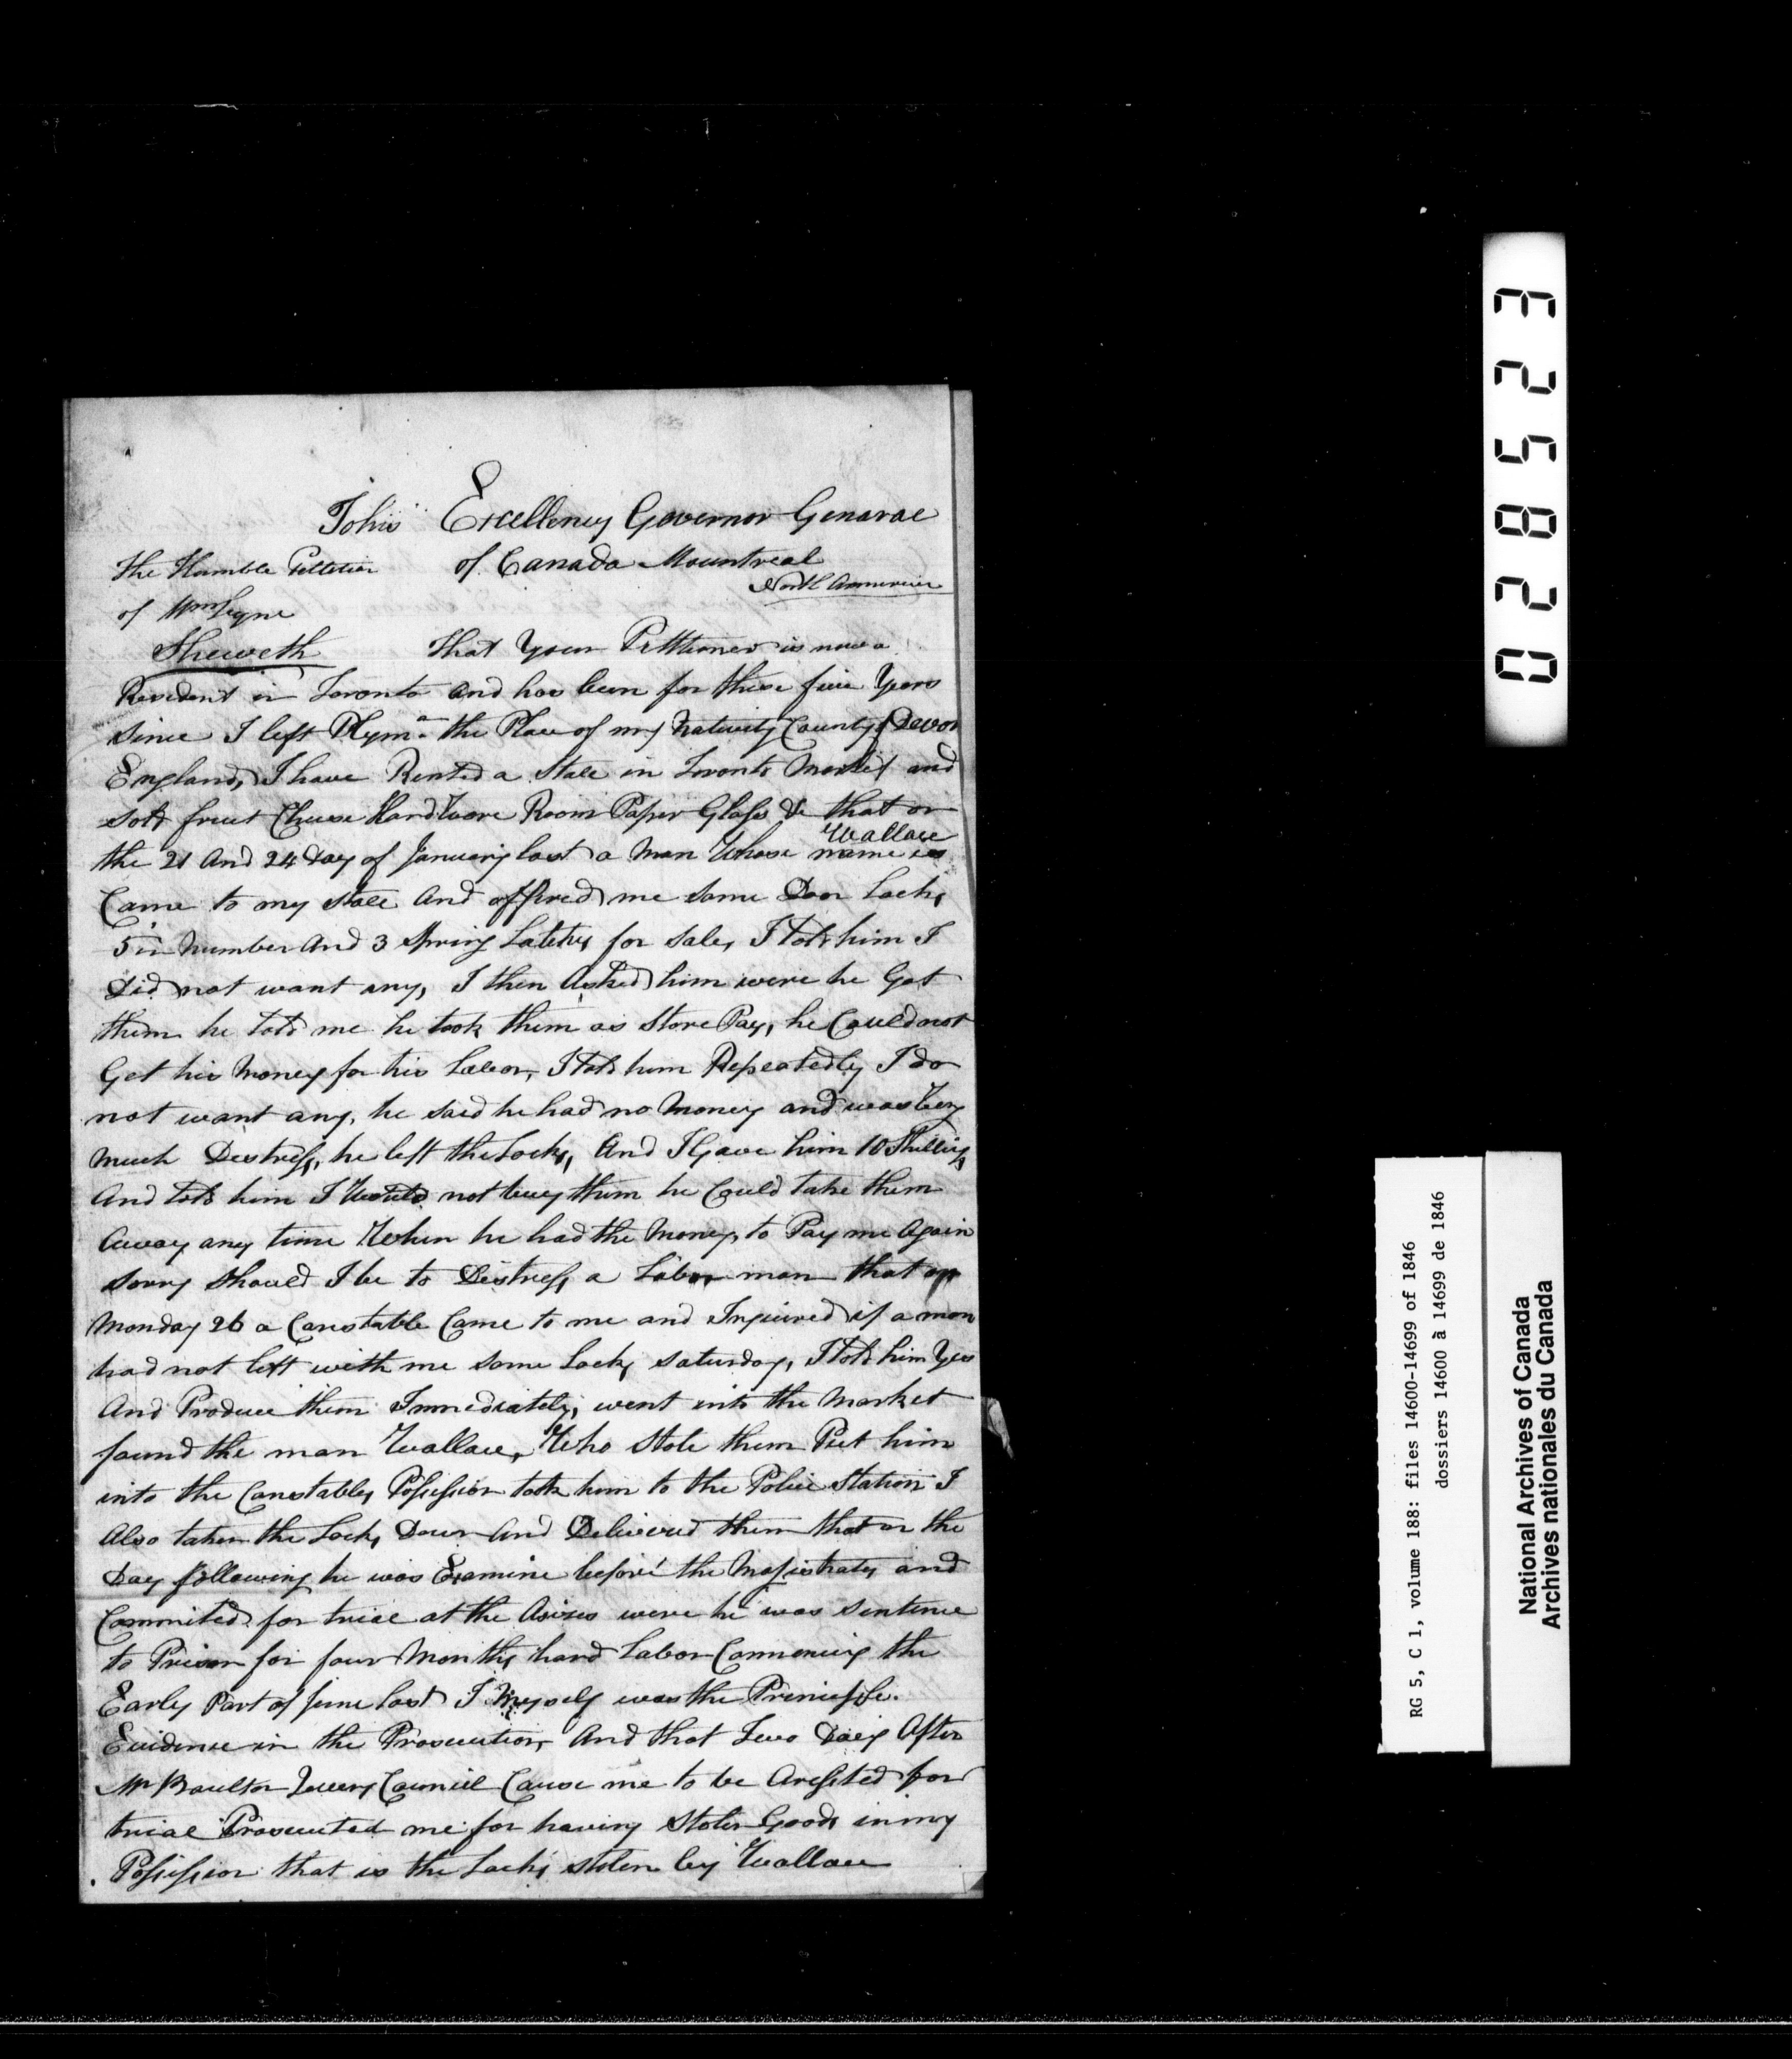 Tohis Excellency Governor Genarae
The Humble Pettetion of Canada Mountreal
North Ammerica
of Wm Syne
Sheweth That Your Pettioner is now a
Resident in Toronto and has been for these five Years
since I left Plym. the Place of my Nativity County of Devon
England, I have Rented a Stale in Toronto Market and
sold fruit Cheese Hard Ware Room Paper Glass &c that on
the 21 And 24 Day of January last a Man Whose name is Wallace
Came to my stale And offired me some Door Locks
5 in Number And 3 Spring Latches for Sale, I told him I
Did not want any, I then Asked him were he Got
them he told me he took them as Store Pay, he Could not
Get his Money for his Labor, I told him Repeatedly I do
not want any, he said he had no Money and was Very
Much Distress, he left the Locks, And I Gave him 10 Shillings
And told him I Would not buy them he Could take them
Away any time When he had the Money, to Pay me Again
Sorry Should I be to Distress a Labor man that on
Monday 26 a Constable Came to me and Inquired if a man
had not left with me some Locks Saturday, I told him Yes
And Produce them Immediately, went into the Market
found the man Wallace, Who Stole them Put him
into the Constables Possession took him to the Police Station I
Also taken the Locks Down And Delivered them that on the
Day following he was Examine before the Magistrates and
Commited for triae at the Asises were he was Sentence
to Prison for four Months hard Labor Commencing the
Early Part of June last I Myself was the Princiople
Evidence in the Prosecution, And that Two Days After
Mr Boulton Council Cause me to be Aressted for
triae Prosecuted me for having Stolen Goods in my
Possession that is the Locks stolen by Wallace
028523
RG 5, C 1, volume 188: files 14600-14699 of 1846
dossiers 14600 à 14699 de 1846
National Archives of Canada
Archives nationales du Canada